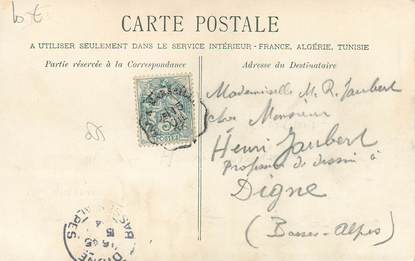 bt
CARTE POSTALE
A UTILISER SEULEMENT DANS LE SERVICE INTÉRIEUR - FRANCE, ALGÉRIE, TUNISIE
Partie réservée à la Correspondance
Adresse du Destinataire
Mademoiselle M. R. Jaubert
chez Monsieur
Henri Jaubert
Professeur de dessin à
Digne
(Basses-Alpes)
MARSEILLE
DIGNE
BASSES ALPES